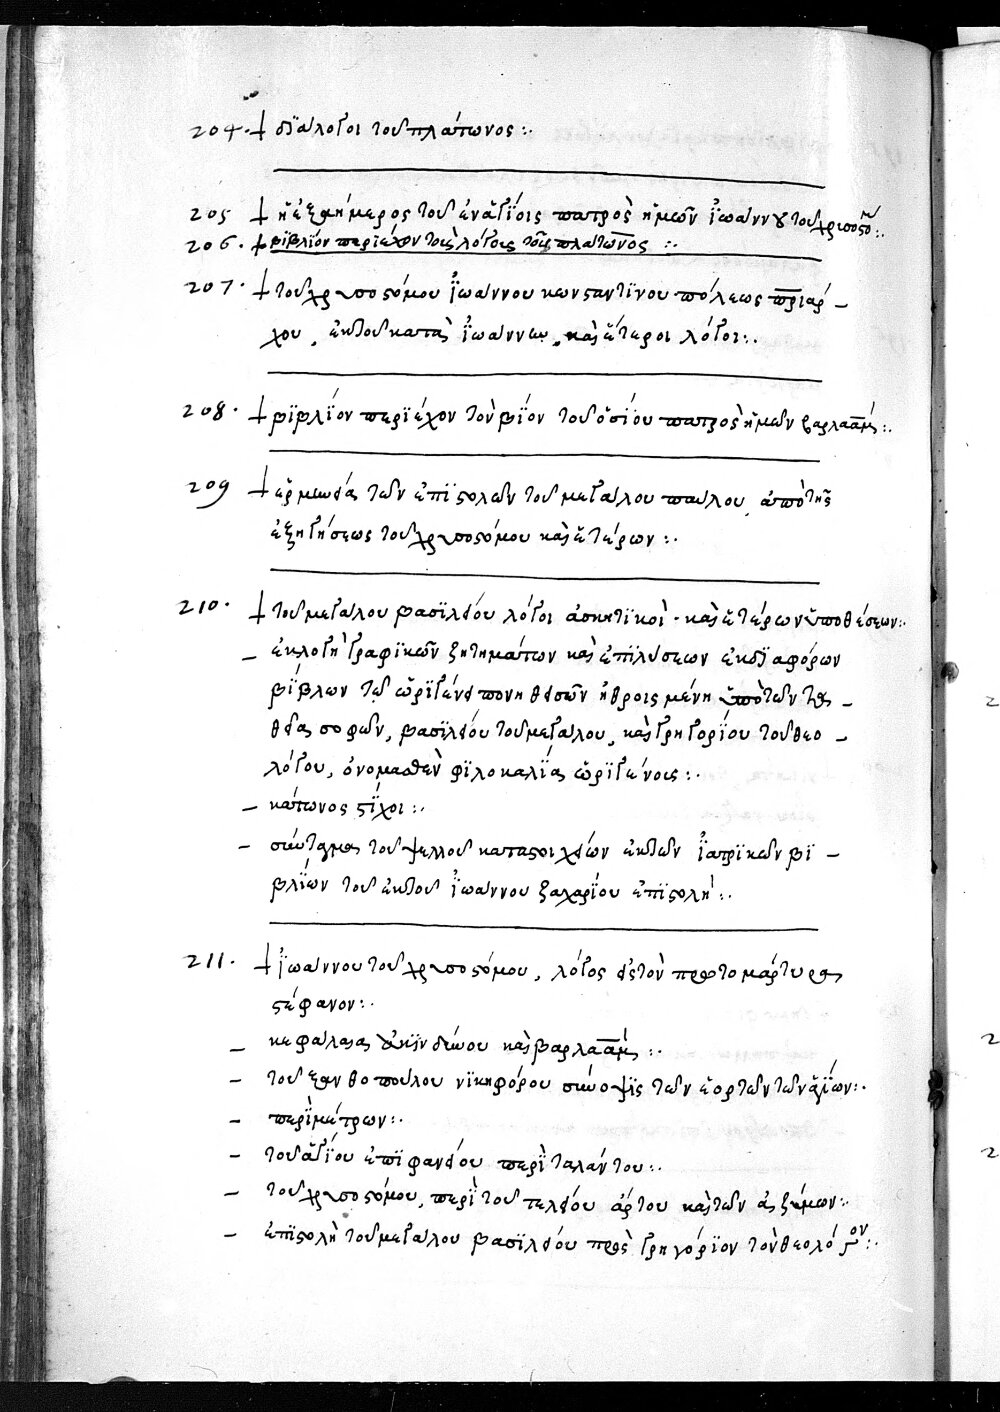 204. ┼ διάλογοι τοῦ πλάτωνος:.
205 ┼ ἡ ἐξαήμερος τοῦ ἐν ἁγίοις πατρὸς ἡμῶν ἰωάννου τοῦ χρυσοστόμ:.
206. ┼ βιβλίον περιέχον τοὺς λόγους τοῦ πλάτωνος :.
207. ┼ τοῦ χρυσοστόμου ἰωάννου κωνσταντίνου πόλεως πριάρ–
χου, ἐκ τοῦ κατὰ ἰωάννην, καὶ ἕτεροι λόγοι:.
208. ┼ βιβλίον περιέχον τὸν βίον τοῦ ὁσίου πατρὸς ἡμῶν βαρλαὰμ:.
209 ┼ ἑρμηνεία τῶν ἐπιστολῶν τοῦ μεγάλου παύλου ἀπὸ τῆς
ἐξηγήσεως τοῦ χρυσοστόμου καὶ ἑτέρων:.
210. ┼ τοῦ μεγάλου βασιλείου λόγοι ἀσκητικοὶ. καὶ ἑτέρων ὑποθέσεων:.
– ἐκλογὴ γραφικῶν ζητημάτων καὶ ἐπιλύσεων ἐκ διαφόρων
βίβλων τῶ ὠριγένει πονηθεισῶν ἠθροισμένη ὑπὸ τῶν τὰ –
θεῖα σοφῶν, βασιλείου τοῦ μεγάλου, καὶ γρηγορίου τοῦ θεο –
λόγου, ὀνομασθὲν φιλοκαλία ὠριγένους:.
– κάτωνος στίχοι:.
– σύνταγμα τοῦ ψελλοῦ κατὰ στοιχείων ἐκ τῶν ἰατρικῶν βι –
βλίων τοῦ ἐκ τοῦ ἰωάννου ζαχαρίου ἐπιστολὴ:.
211. ┼ ἰωάννου τοῦ χρυσοστόμου, λόγος εἰς τὸν πρωτομάρτυρα
στέφανον:.
– κεφάλαια ἀκινδύνου καὶ βαρλαὰμ:.
– τοῦ ξανθοπούλου νικηφόρου σύνοψις τῶν ἑορτῶν τῶν ἁγίων:.
– περὶ μέτρων:.
– τοῦ ἁγίου ἐπιφανείου περὶ ταλάντου:.
– τοῦ χρυσοστόμου, περὶ τοῦ τελείου ἄρτου καὶ τῶν ἀζύμων:.
– ἐπιστολὴ τοῦ μεγάλου βασιλείου πρὸς γρηγόριον τὸν θεολόγον:.